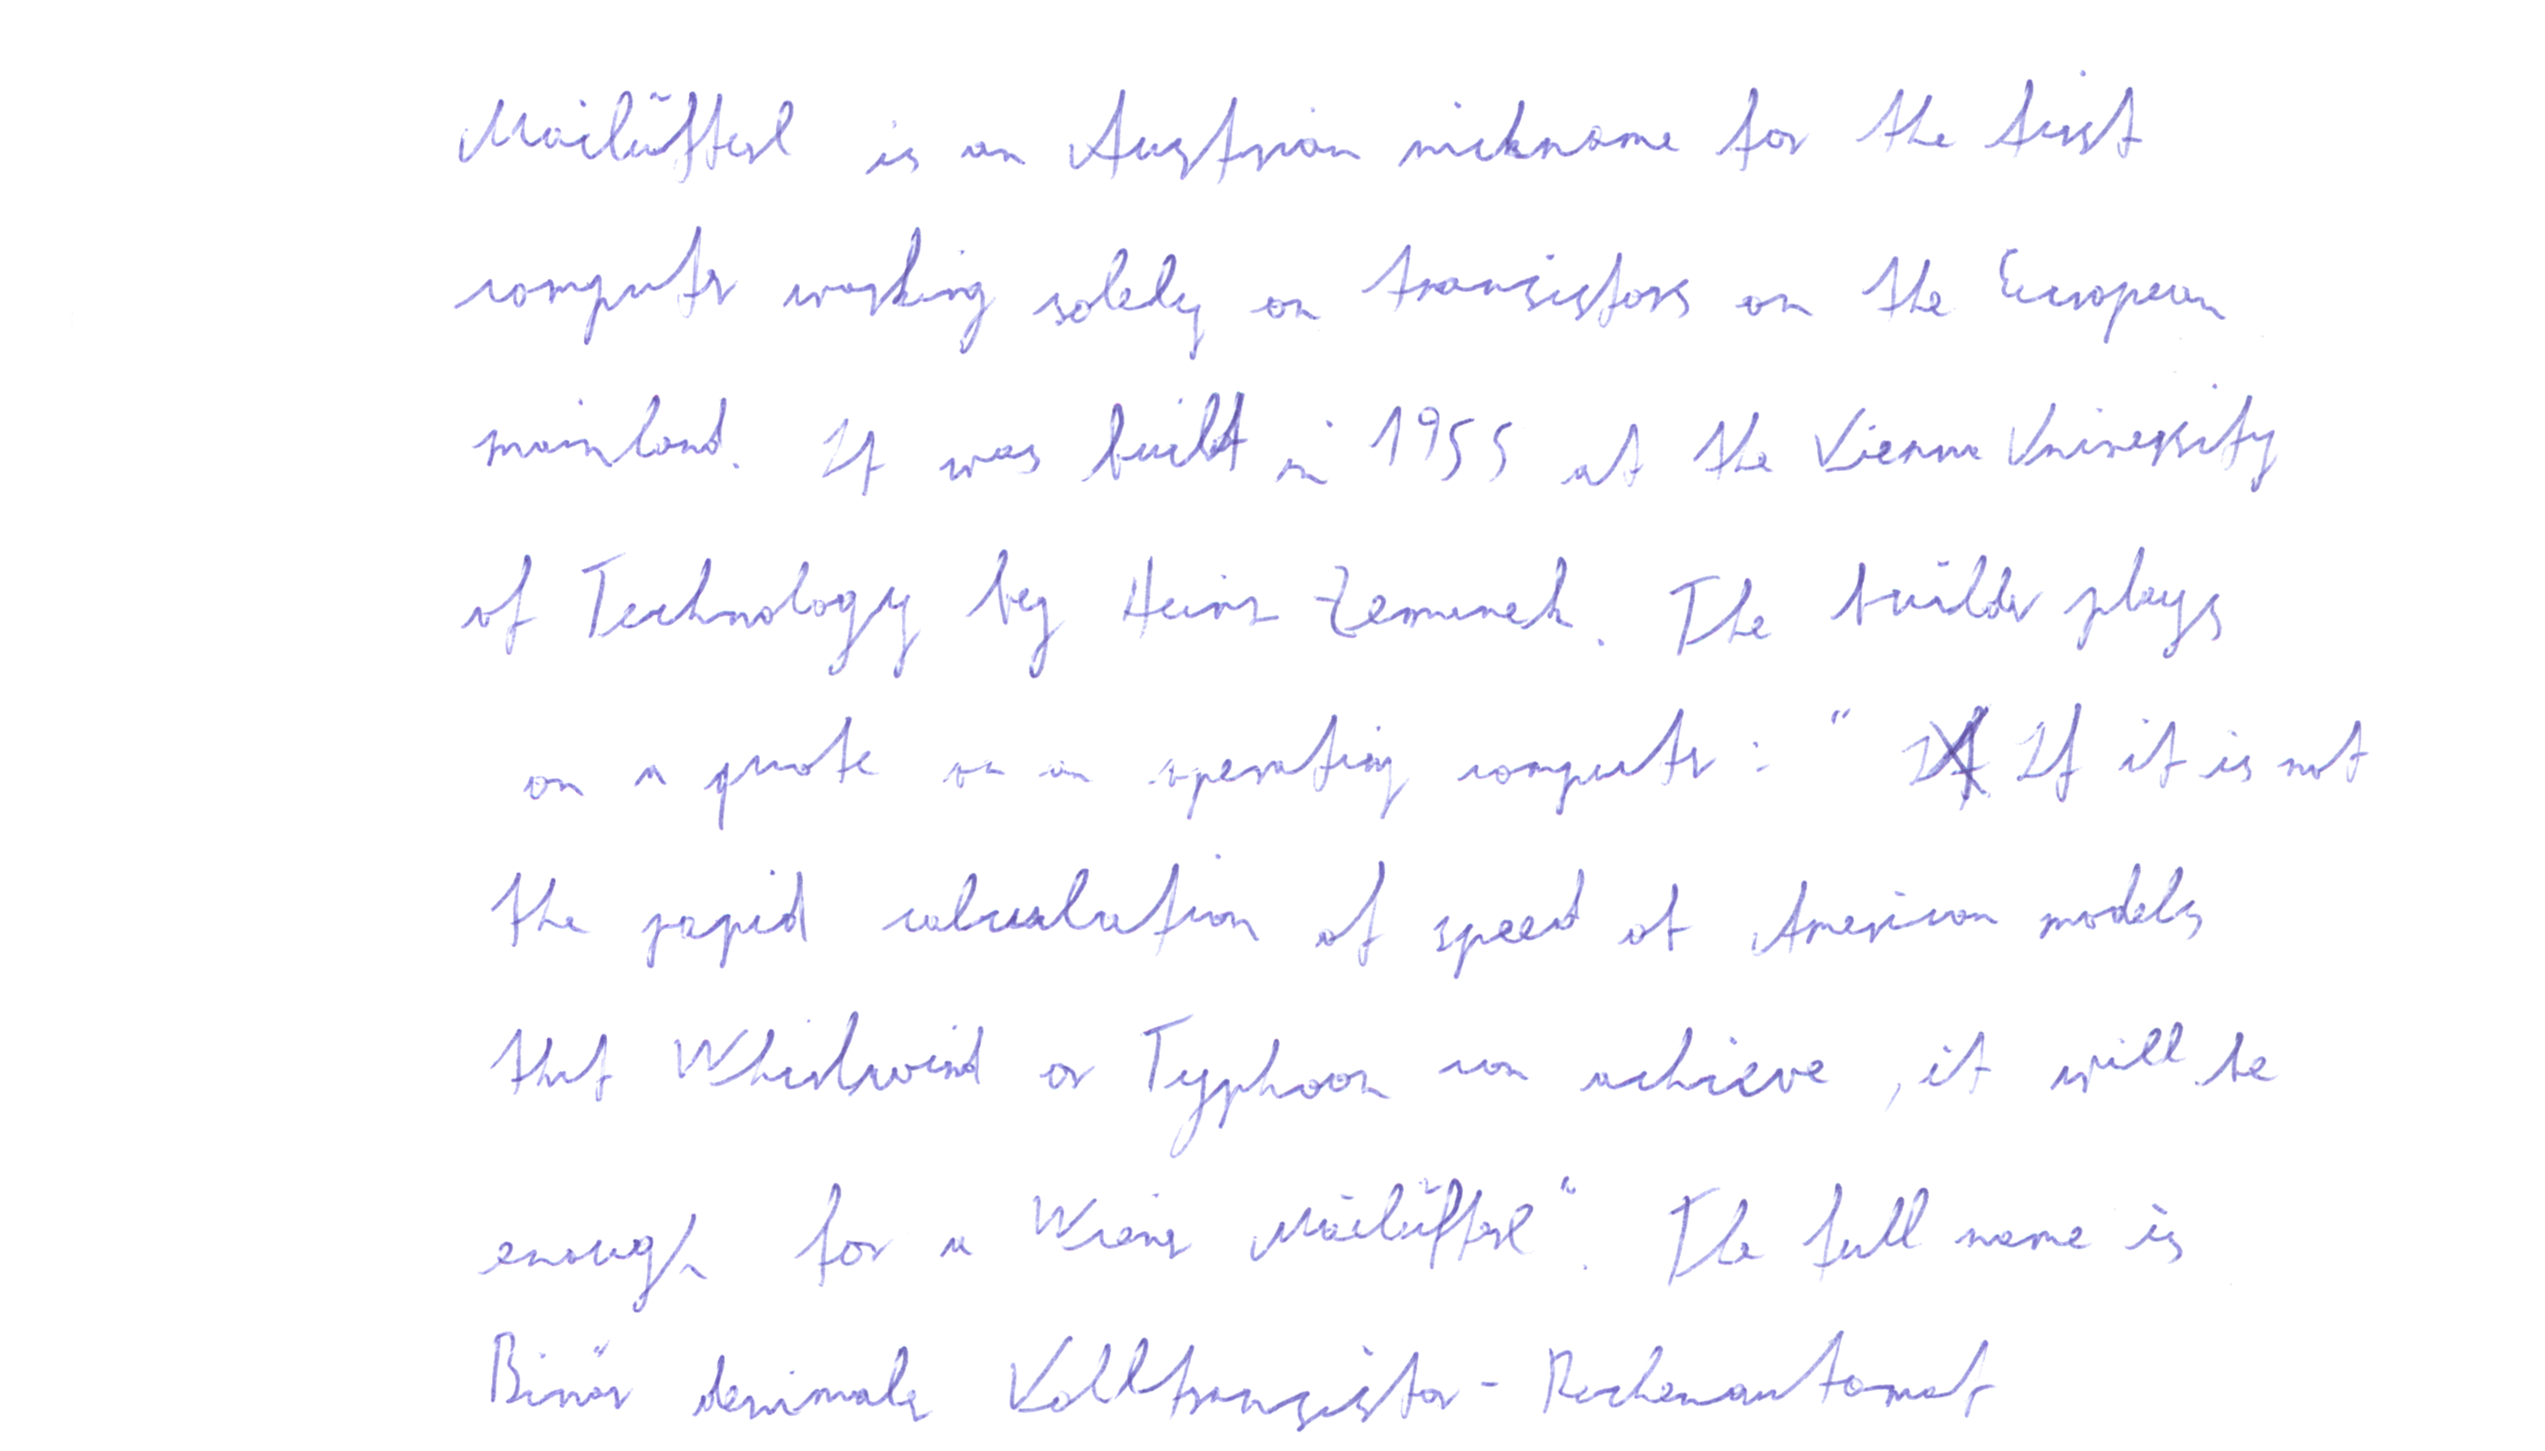 Mailüfterl is an Austrian nickname for the first
computer working solely on transistors on the European
mainland. It was built in 1955 at the Vienna University
of Technology by Heinz Zemanek. The builder plays
on a quote on an operating computer: " If it is not
the rapid calculation of speed of American models
that Whirlwind or Typhoon can achieve, it will be
enough for a Wiener Mailüfterl". The full name is
Binär dezimaler Volltransistor-Rechenautomat